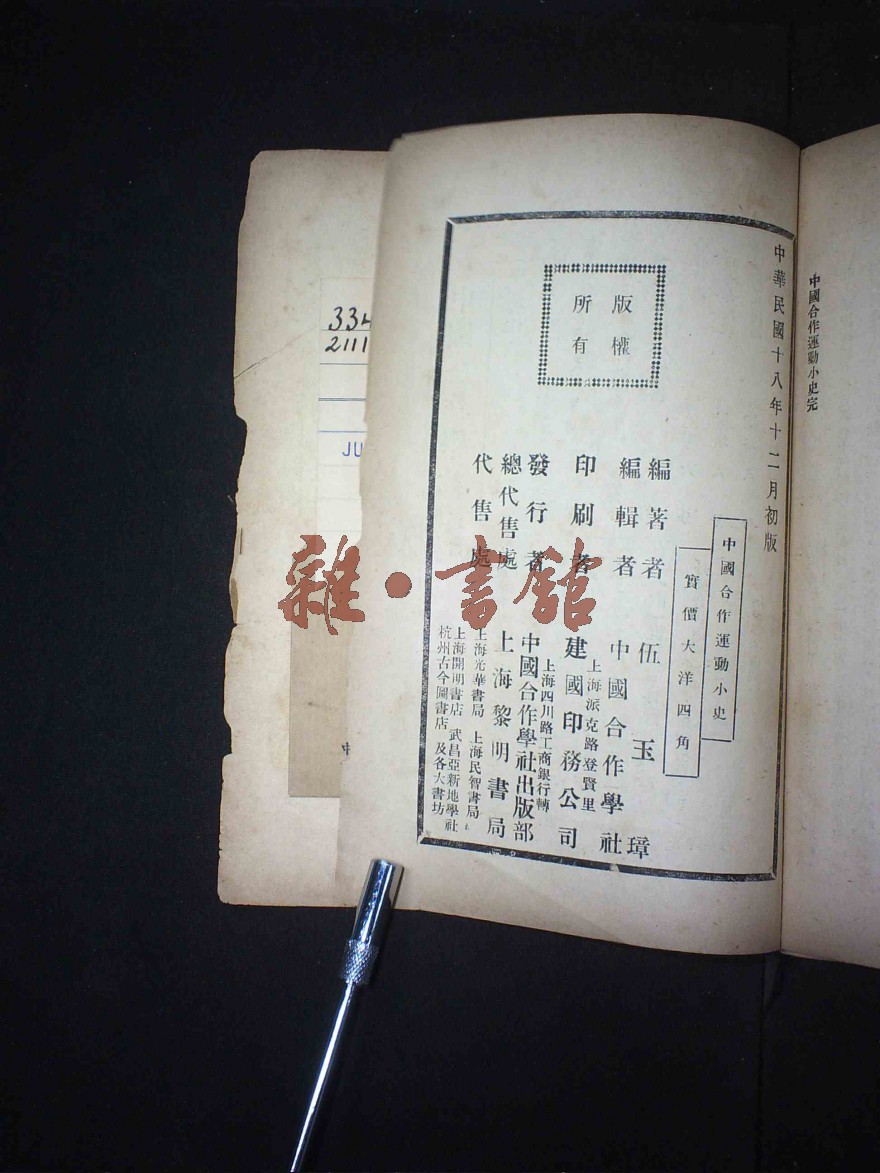 中國合作運動小史完
中華民國十八年十二月初版
中國合作運動小史
實價大洋四角
版權
所有
編著者 伍玉璋
編輯者 中國合作學社
上海派克路登賢里
印刷者 建國印務公司
上海四川路工商銀行轉
發行者 中國合作學社出版部
總代售處 上海黎明書局
代售處
上海光華書局 上海民智書局
上海開明書店 武昌亞新地學社
杭州古今圖書店 及各大書坊
334
2111
JU
雜·書館